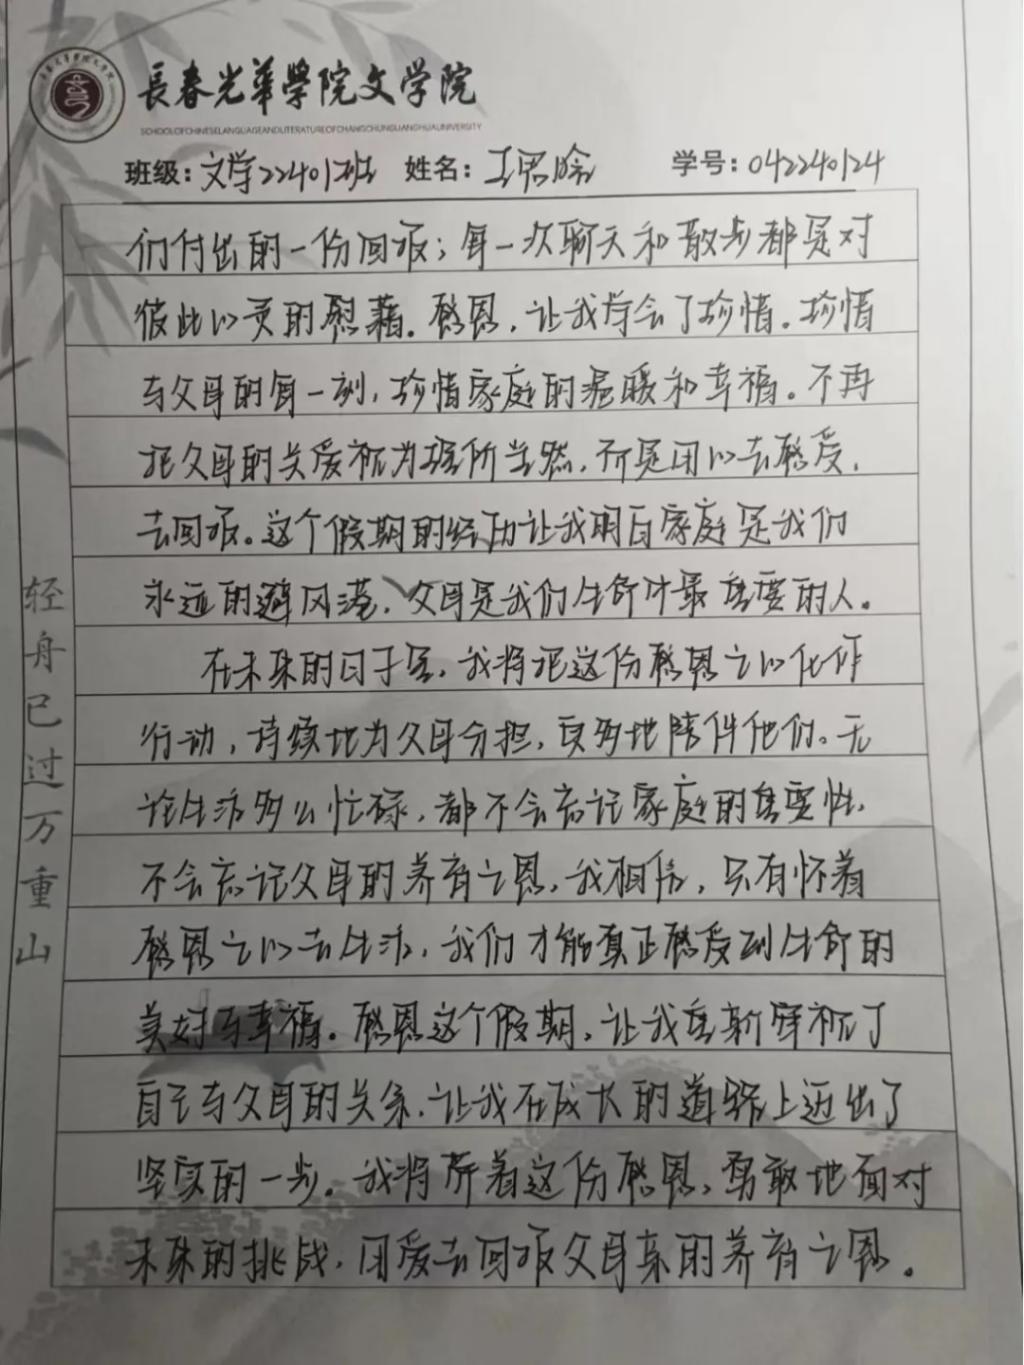 長春光華學院文学院
SCHOOLOFCHINESELANGUAGEANDLITERATUREOFCHANGCHUNGUANGHUAUNIVERSITY
班级：文学22401班 姓名：王思晗 学号：042240124
们付出的一份回报；每一次聊天和散步都是对
彼此心灵的慰藉。感恩，让我学会了珍惜。珍惜
与父母的每一刻，珍惜家庭的温暖和幸福。不再
把父母的关爱视为理所当然，而是用心去感受，
去回报。这个假期的经历让我明白家庭是我们
永远的避风港，父母是我们生命中最重要的人。
在未来的日子里，我将把这份感恩之心化作
行动，持续地为父母分担，更多地陪伴他们。无
论生活多么忙碌，都不会忘记家庭的重要性，
不会忘记父母的养育之恩，我相信，只有怀着
感恩之心去生活，我们才能真正感受到生命的
美好与幸福。感恩这个假期，让我重新审视了
自己与父母的关系，让我在成长的道路上迈出了
坚实的一步。我将带着这份感恩，勇敢地面对
未来的挑战，用爱去回报父母亲的养育之恩。
轻舟已过万重山